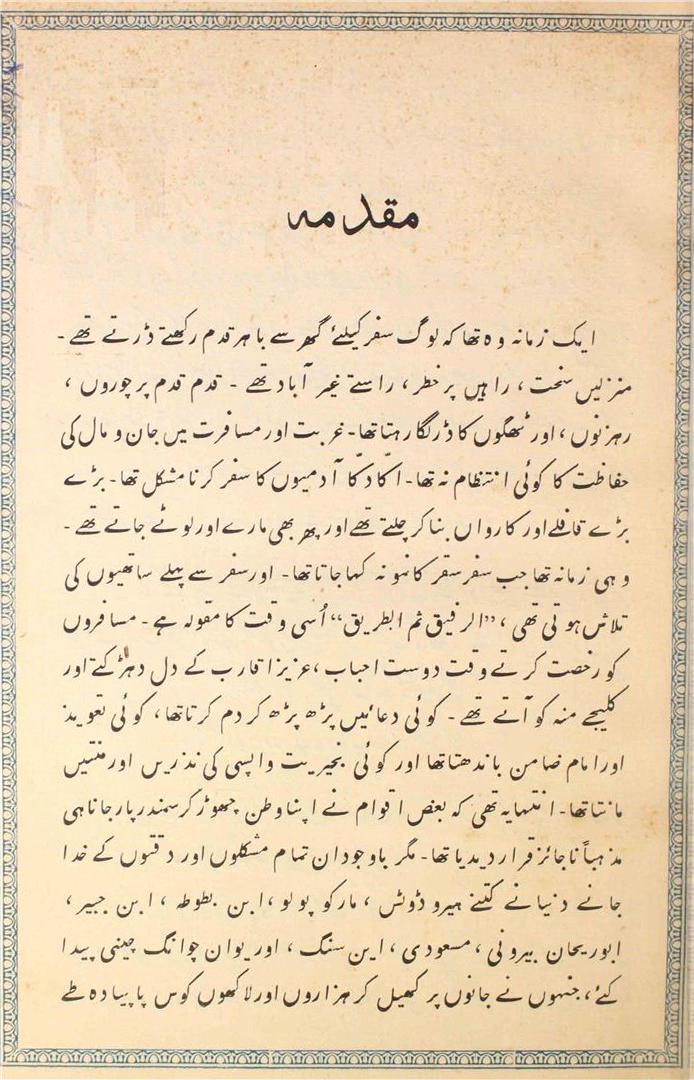 مقدمہ
ایک زمانہ وہ تھا کہ لوگ سفر کیلئے گھر سے باہر قدم رکھتے ڈرتے تھے -
منزلیں سخت ، راہیں پر خطر ، راستے غیر آباد تھے - قدم قدم پر چوروں ،
رہزنوں ، اور ٹھگوں کا ڈر لگا رہتا تھا - غربت اور مسافرت میں جان و مال کی
حفاظت کا کوئی انتظام نہ تھا - اکّا دکّا آدمیوں کا سفر کرنا مشکل تھا - بڑے
بڑے قافلے اور کارواں بنا کر چلتے تھے اور پھر بھی مارے اور لوٹے جاتے تھے -
وہی زمانہ تھا جب سفر سقر کا نمونہ کہا جاتا تھا - اور سفر سے پہلے ساتھیوں کی
تلاش ہوتی تھی ، ”الرفیق ثم الطریق“ اُسی وقت کا مقولہ ہے - مسافروں
کو رخصت کرتے وقت دوست احباب ، عزیز اقارب کے دل دہڑکتے اور
کلیجے منہ کو آتے تھے - کوئی دعائیں پڑھ پڑھ کر دم کرتا تھا ، کوئی تعویذ
اور امام ضامن باندھتا تھا اور کوئی بخیریت واپسی کی نذریں اور منتیں
مانتا تھا - انتہا یہ تھی کہ بعض اقوام نے اپنا وطن چھوڑ کر سمندر پار جانا ہی
مذہباً ناجائز قرار دیدیا تھا - مگر باوجود ان تمام مشکلوں اور دقتوں کے خدا
جانے دنیا نے کتنے ہیروڈوٹس ، مارکو پولو ، ابن بطوطہ ، ابن جبیر ،
ابوریحان بیرونی ، مسعودی ، این سنگ ، اور یوان چوانگ چینی پیدا
کئے ، جنہوں نے جانوں پر کھیل کر ہزاروں اور لاکھوں کوس پا پیادہ طے